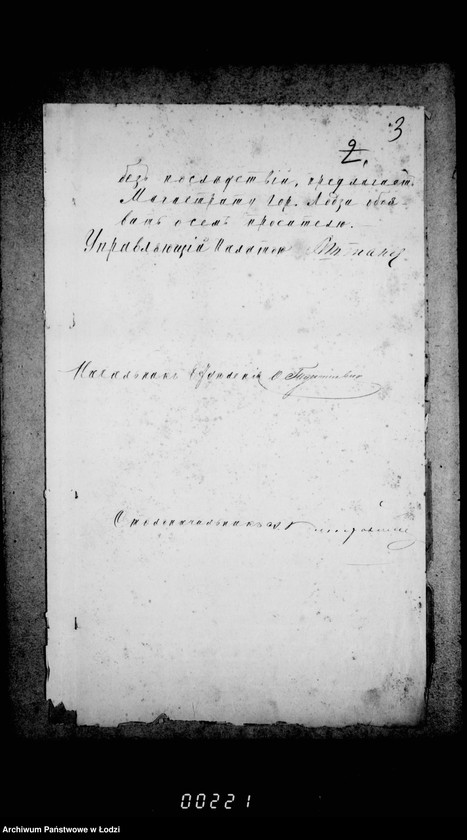 3
2.
безъ послѣдствій, предлагаетъ
Магистрату гор. Лодзи объя
вить о семъ просителю.
Управляющій Палатою
Начальникъ Отдѣленія
Столоначальникъ
00221
Archiwum Państwowe w Łodzi